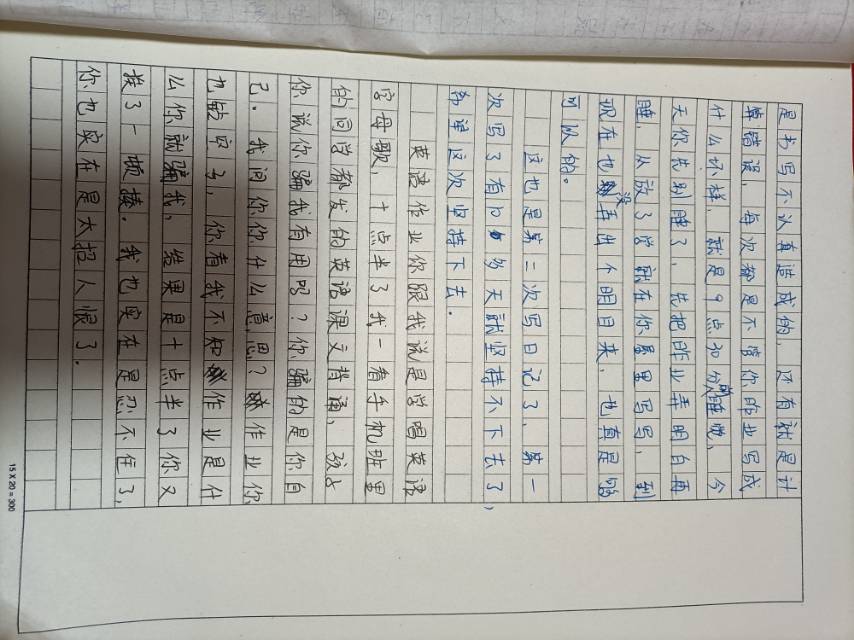 是书写不认真造成的，还有就是计
算错误，每次都是不管你昨业写成
什么坏样，就是9点30分的睡晚，今
天你先别睡了，先把昨业弄明白再
睡，从放了学就在你屋里写写，到
现在也没弄出个明目来，也真是够
可以的。
这也是第二次写日记了，第一
次写了有10多天就坚持不下去了，
希望这次坚持下去。
英语作业你跟我说是学唱英语
字母歌，十点半了我一看手机班里
的同学都发的英语课文背诵，孩子
你说你骗我有用吗？你骗的是你自
己。我问你你什么意思？作业你
也敢空了，你看我不知作业是什
么你就骗我，结果是十点半了你又
挨了一顿揍。我也实在是忍不住了，
你也实在是太招人恨了。
15×20=300